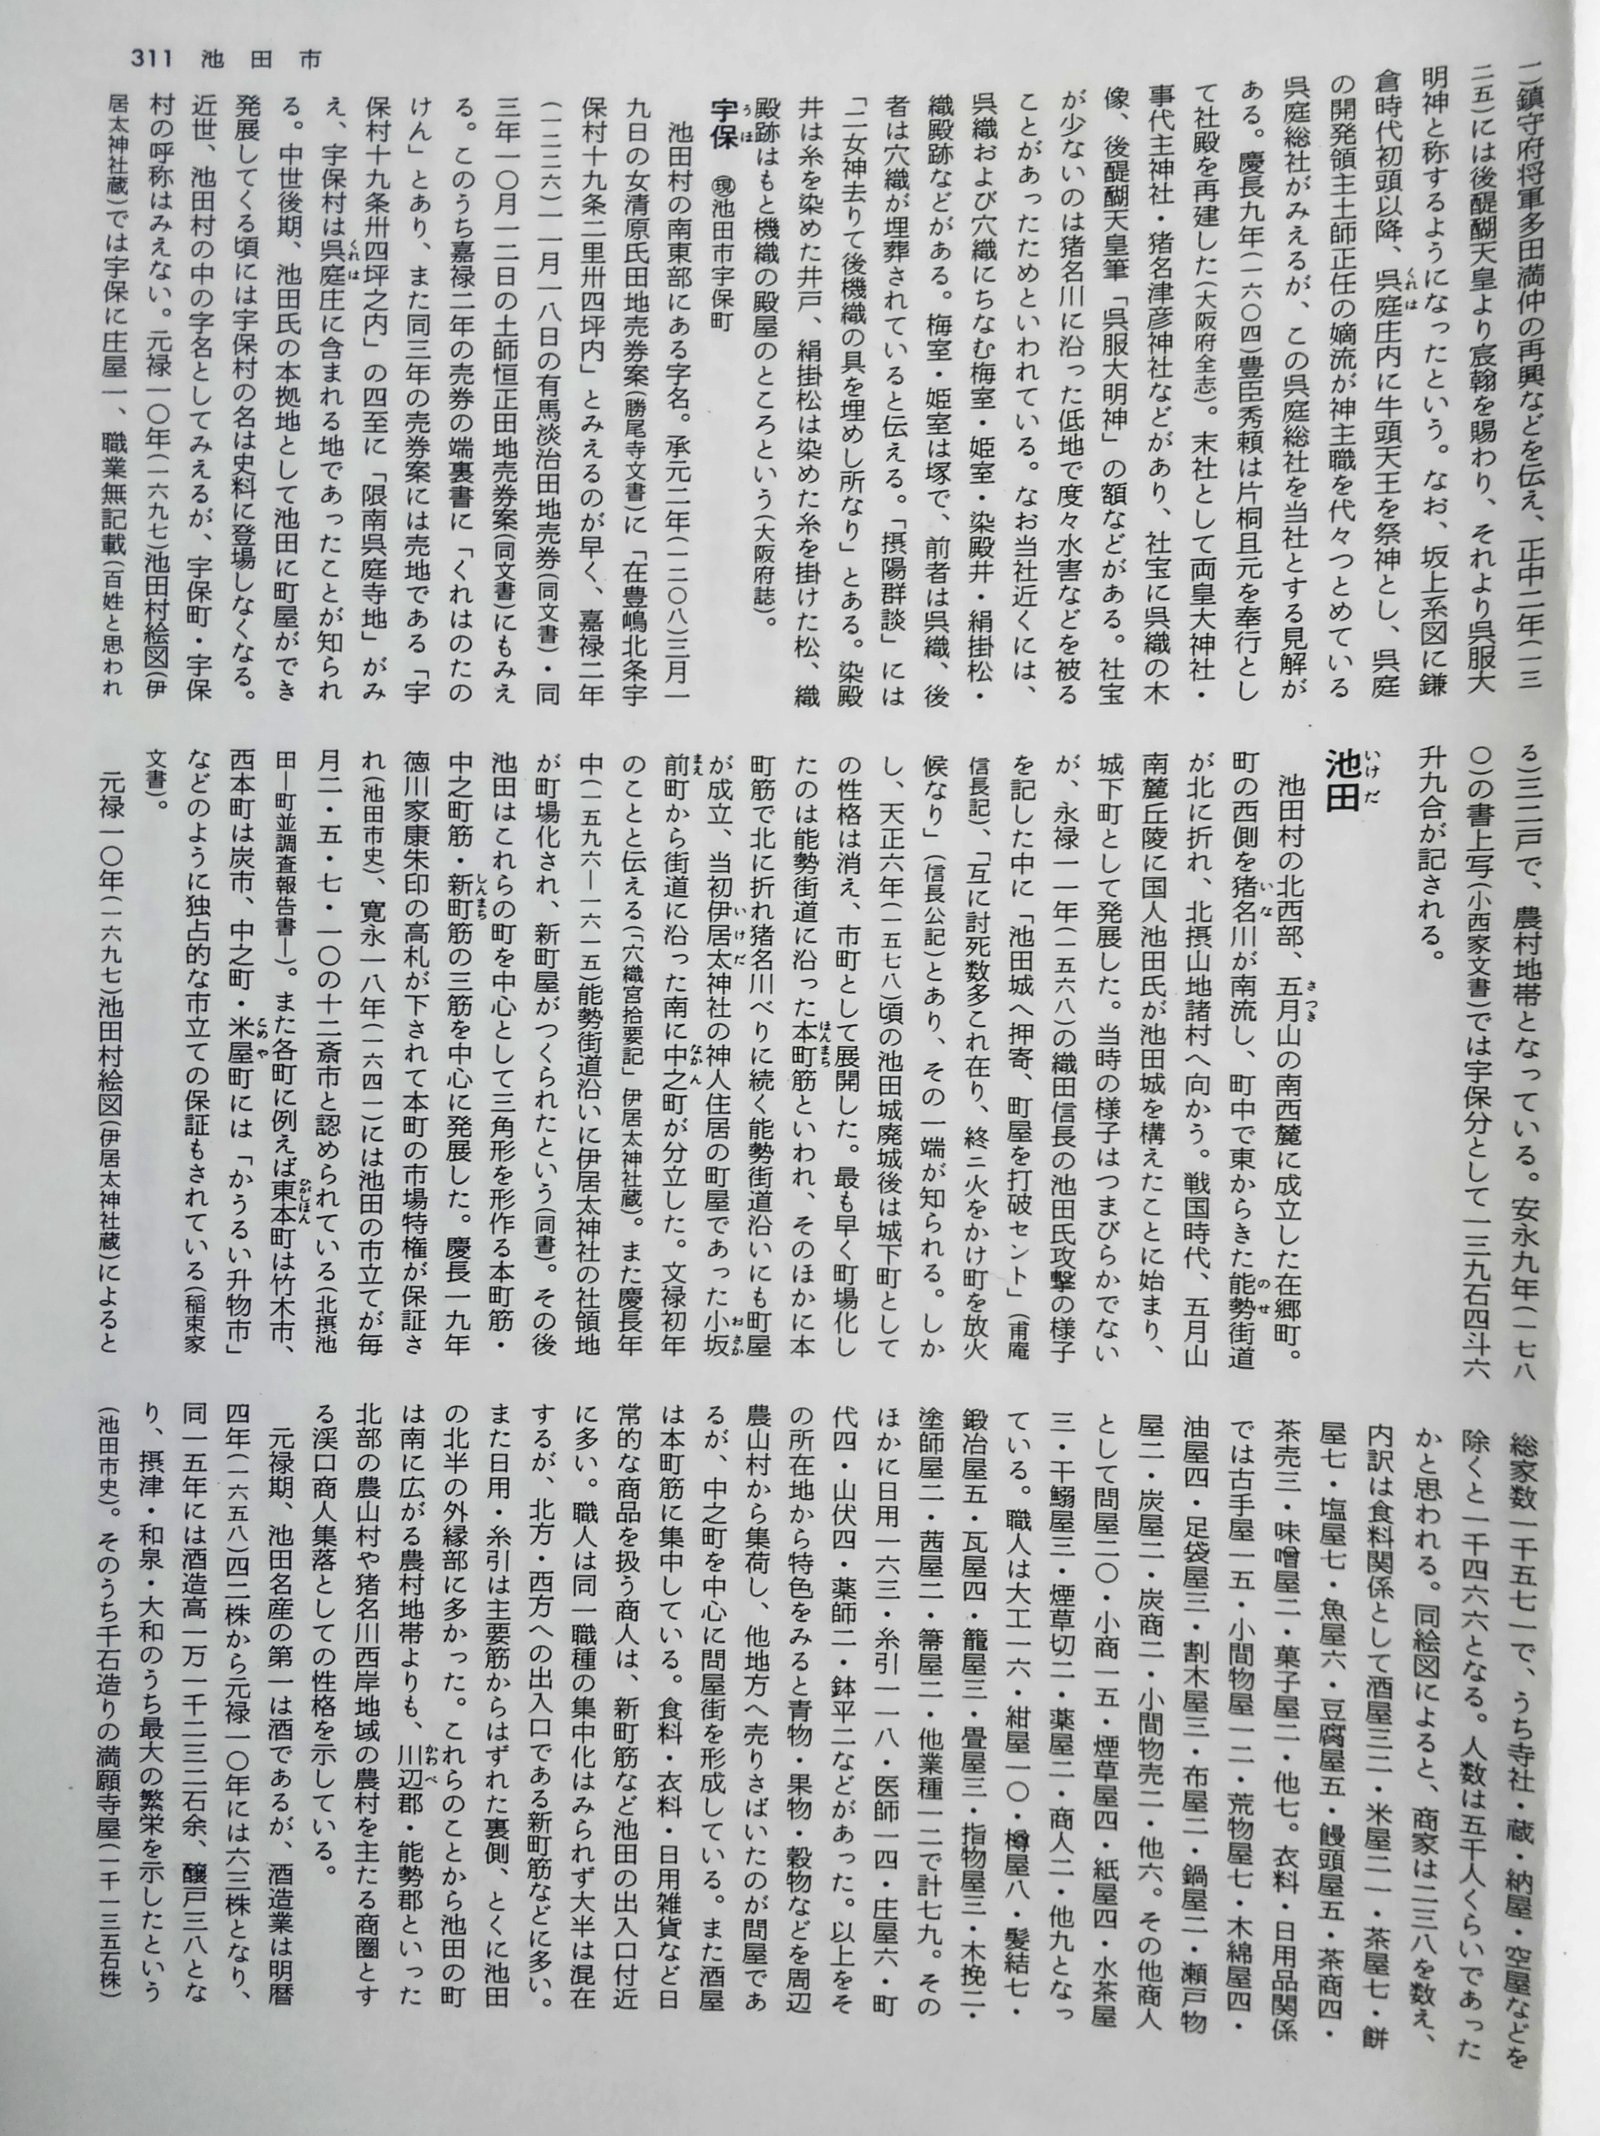 311 池田市
一)鎮守府将軍多田満仲の再興などを伝え、正中二年(一三
二五)には後醍醐天皇より宸翰を賜わり、それより呉服大
明神と称するようになったという。なお、坂上系図に鎌
倉時代初頭以降、呉庭庄内に牛頭天王を祭神とし、呉庭
の開発領主土師正任の嫡流が神主職を代々つとめている
呉庭総社がみえるが、この呉庭総社を当社とする見解が
ある。慶長九年(一六〇四)豊臣秀頼は片桐且元を奉行とし
て社殿を再建した(大阪府全志)。末社として両皇大神社・
事代主神社・猪名津彦神社などがあり、社宝に呉織の木
像、後醍醐天皇筆「呉服大明神」の額などがある。社宝
が少ないのは猪名川に沿った低地で度々水害などを被る
ことがあったためといわれている。なお当社近くには、
呉織および穴織にちなむ梅室・姫室・染殿井・絹掛松・
織殿跡などがある。梅室・姫室は塚で、前者は呉織、後
者は穴織が埋葬されていると伝える。「摂陽群談」には
「二女神去りて後機織の具を埋めし所なり」とある。染殿
井は糸を染めた井戸、絹掛松は染めた糸を掛けた松、織
殿跡はもと機織の殿屋のところという(大阪府誌)。
宇保 うほ ㊬池田市宇保町
池田村の南東部にある字名。承元二年(一二〇八)三月一
九日の女清原氏田地売券案(勝尾寺文書)に「在豊嶋北条宇
保村十九条二里卅四坪内」とみえるのが早く、嘉禄二年
(一二二六)一一月一八日の有馬淡治田地売券(同文書)・同
三年一〇月一二日の土師恒正田地売券案(同文書)にもみえ
る。このうち嘉禄二年の売券の端裏書に「くれはのたの
けん」とあり、また同三年の売券案には売地である「宇
保村十九条卅四坪之内」の四至に「限南呉庭寺地」がみ
え、宇保村は呉庭庄に含まれる地であったことが知られ
る。中世後期、池田氏の本拠地として池田に町屋ができ
発展してくる頃には宇保村の名は史料に登場しなくなる。
近世、池田村の中の字名としてみえるが、宇保町・宇保
村の呼称はみえない。元禄一〇年(一六九七)池田村絵図(伊
居太神社蔵)では宇保に庄屋一、職業無記載(百姓と思われ
る)三二戸で、農村地帯となっている。安永九年(一七八
〇)の書上写(小西家文書)では宇保分として一三九石四斗六
升九合が記される。
池田 いけだ
池田村の北西部、五月山の南西麓に成立した在郷町。
町の西側を猪名川が南流し、町中で東からきた能勢街道
が北に折れ、北摂山地諸村へ向かう。戦国時代、五月山
南麓丘陵に国人池田氏が池田城を構えたことに始まり、
城下町として発展した。当時の様子はつまびらかでない
が、永禄一一年(一五六八)の織田信長の池田氏攻撃の様子
を記した中に「池田城へ押寄、町屋を打破セント」(甫庵
信長記)、「互に討死数多これ在り、終ニ火をかけ町を放火
候なり」(信長公記)とあり、その一端が知られる。しか
し、天正六年(一五七八)頃の池田城廃城後は城下町として
の性格は消え、市町として展開した。最も早く町場化し
たのは能勢街道に沿った本町筋といわれ、そのほかに本
町筋で北に折れ猪名川べりに続く能勢街道沿いにも町屋
が成立、当初伊居太神社の神人住居の町屋であった小坂
前町から街道に沿った南に中之町が分立した。文禄初年
のことと伝える(「穴織宮拾要記」伊居太神社蔵)。また慶長年
中(一五九六―一六一五)能勢街道沿いに伊居太神社の社領地
が町場化され、新町屋がつくられたという(同書)。その後
池田はこれらの町を中心として三角形を形作る本町筋・
中之町筋・新町筋の三筋を中心に発展した。慶長一九年
徳川家康朱印の高札が下されて本町の市場特権が保証さ
れ(池田市史)、寛永一八年(一六四一)には池田の市立てが毎
月二・五・七・一〇の十二斎市と認められている(北摂池
田―町並調査報告書―)。また各町に例えば東本町は竹木市、
西本町は炭市、中之町・米屋町には「かうるい升物市」
などのように独占的な市立ての保証もされている(稲束家
文書)。
元禄一〇年(一六九七)池田村絵図(伊居太神社蔵)によると
総家数一千五七一で、うち寺社・蔵・納屋・空屋などを
除くと一千四六六となる。人数は五千人くらいであった
かと思われる。同絵図によると、商家は二三八を数え、
内訳は食料関係として酒屋三二・米屋二一・茶屋七・餅
屋七・塩屋七・魚屋六・豆腐屋五・饅頭屋五・茶商四・
茶売三・味噌屋二・菓子屋二・他七。衣料・日用品関係
では古手屋一五・小間物屋一二・荒物屋七・木綿屋四・
油屋四・足袋屋三・割木屋三・布屋二・鍋屋二・瀬戸物
屋二・炭屋二・炭商二・小間物売二・他六。その他商人
として問屋二〇・小商一五・煙草屋四・紙屋四・水茶屋
三・干鰯屋三・煙草切二・薬屋二・商人二・他九となっ
ている。職人は大工一六・紺屋一〇・樽屋八・髪結七・
鍛冶屋五・瓦屋四・籠屋三・畳屋三・指物屋三・木挽二・
塗師屋二・茜屋二・箒屋二・他業種一二で計七九。その
ほかに日用一六三・糸引一一八・医師一四・庄屋六・町
代四・山伏四・薬師二・鉢平二などがあった。以上をそ
の所在地から特色をみると青物・果物・穀物などを周辺
農山村から集荷し、他地方へ売りさばいたのが問屋であ
るが、中之町を中心に問屋街を形成している。また酒屋
は本町筋に集中している。食料・衣料・日用雑貨など日
常的な商品を扱う商人は、新町筋など池田の出入口付近
に多い。職人は同一職種の集中化はみられず大半は混在
するが、北方・西方への出入口である新町筋などに多い。
また日用・糸引は主要筋からはずれた裏側、とくに池田
の北半の外縁部に多かった。これらのことから池田の町
は南に広がる農村地帯よりも、川辺郡・能勢郡といった
北部の農山村や猪名川西岸地域の農村を主たる商圏とす
る渓口商人集落としての性格を示している。
元禄期、池田名産の第一は酒であるが、酒造業は明暦
四年(一六五八)四二株から元禄一〇年には六三株となり、
同一五年には酒造高一万一千二三二石余、醸戸三八とな
り、摂津・和泉・大和のうち最大の繁栄を示したという
(池田市史)。そのうち千石造りの満願寺屋(一千一三五石株)